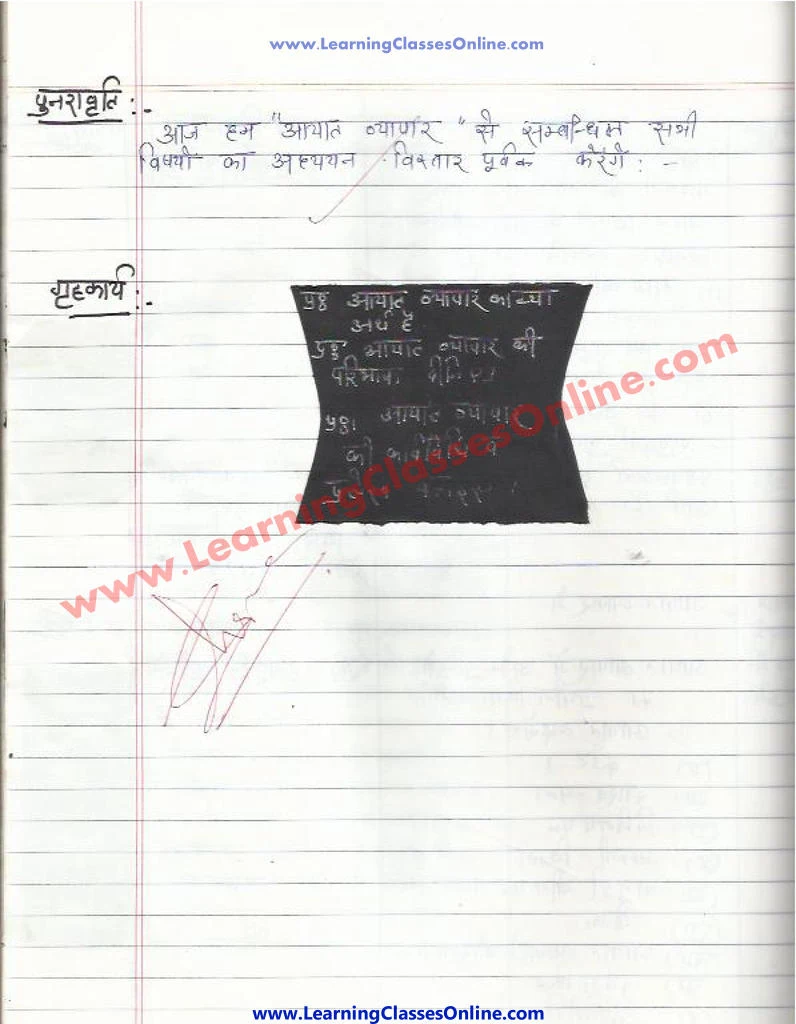 www.LearningClassesOnline.com
पुनरावृति :-
आज हम "आयात व्यापार" से सम्बन्धित सभी
विषयो का अध्ययन विस्तार पूर्वक करेंगे : -
गृहकार्य :-
प्र० आयात व्यापार का क्या
अर्थ है
प्र० आयात व्यापार की
परिभाषा दीजिए
प्र०। आयात व्यापार
की कार्यविधि
www.LearningClassesOnline.com
www.LearningClassesOnline.com